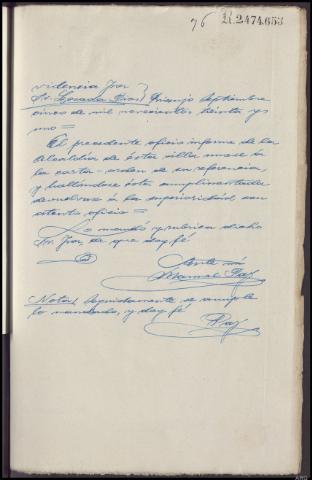 76 R.2474.653
videncia Juez
Sr. Losada Dias} Arianjo Septiembre
cinco de mil novecientos treinta y
uno =
El precedente oficio informe de la
Alcaldía de ésta villa unase á
la carta-orden de su referencia,
y hallandose ésta cumplimentada
devuelvase á la superioridad con
atento oficio =
Lo mandó y rubrica dicho
Sr. Juez de que doy fé
Ante mi
Manuel Paz
Nota/ Seguidamente se cumple
lo mandado, y doy fé
Paz